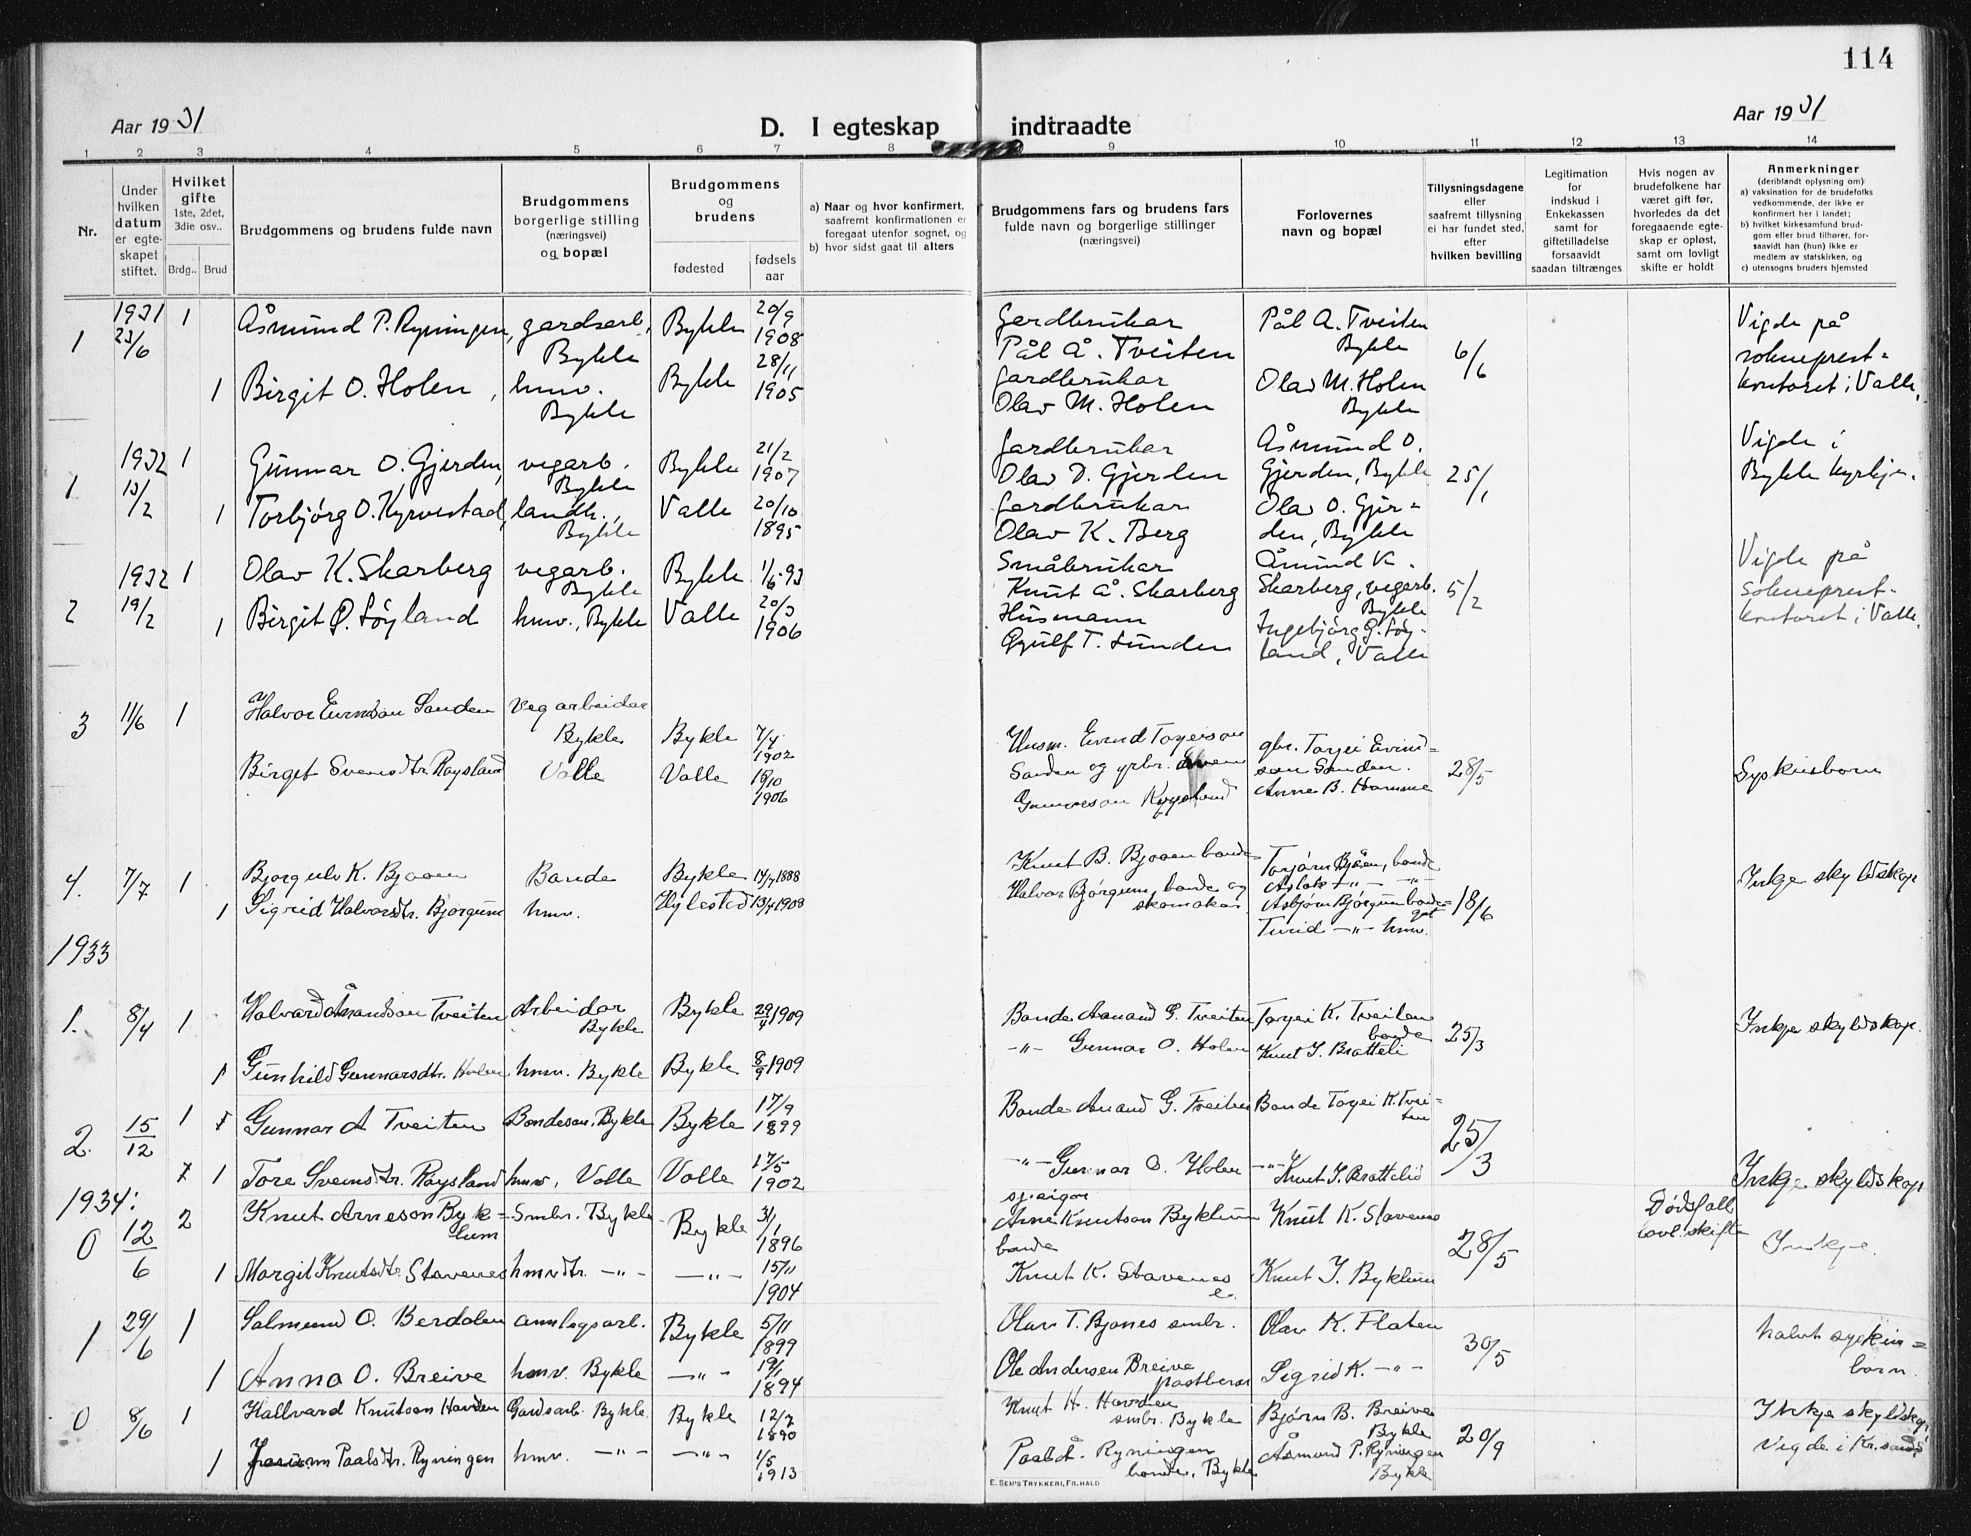 114
Aar 1931
D. I egteskap indtraadte
Aar 1931
1 2 3 4 5 6 7 8 9 10 11 12 13 14
Nr.
Under hvilken datum er egte- skapet stiftet.
Hvilket gifte 1ste, 2det, 3die osv..
Brdg.. Brud
Brudgommens og brudens fulde navn
Brudgommens borgerlige stilling (næringsvei) og bopæl
Brudgommens og brudens
fødested
fødsels aar
a) Naar og hvor konfirmert, saafremt konfirmationen er foregaat utenfor sognet, og
b) hvor sidst gaat til alters
Brudgommens fars og brudens fars fulde navn og borgerlige stillinger (næringsvei)
Forlovernes navn og bopæl
Tillysningsdagene eller saafremt tillysning ei har fundet sted, efter hvilken bevilling
Legitimation for indskud i Enkekassen samt for giftetilladelse forsaavidt saadan tiltrænges
Hvis nogen av brudefolkene har været gift før, hvorledes da det foregaaende egte- skap er opløst, samt om lovligt skifte er holdt
Anmerkninger
(deriblandt oplysning om):
a) vaksination for de brudefolks vedkommende, der ikke er konfirmert her i landet;
b) hvilket kirkesamfund brud- gom eller brud tilhører, for- saavidt han (hun) ikke er medlem av statskirken, og
c) utensogns bruders hjemsted
1 1931 23/6 1 Åsmund P. Ryningen, gardsarb, Bykle Bykle 20/9 1908 Gardbrukar Pål Å. Tveiten Pål A. Tveiten Bykle 6/6 Vigde på sokneprest= kontoret i Valle.
1 Birgit O. Holen, hmv. Bykle Bykle 28/11 1905 Gardbrukar Olav M. Holen Olav M. Holen Bykle
1 1932 13/2 1 Gunnar O. Gjerden, vegarb. Bykle Bykle 21/2 1907 Gardbrukar Olav D. Gjerden Åsmund O. Gjerden, Bykle 25/1 Vigde i Bykle kyrkje.
1 Torbjørg O. Kyrvestad, landh., Bykle Valle 20/10 1895 Gardbrukar Olav K. Berg Olav O. Gjer= den, Bykle
2 1932 19/2 1 Olav K. Skarberg vegarb. Bykle Bykle 1/6.93 Småbrukar Knut Å. Skarberg Åmund K. Skarberg, vegarb. Bykle 5/2 Vigde på sokneprest- kontoret i Valle.
1 Birgit Ø. Løyland hmv., Bykle Valle 20/3 1906 Husmann Øyulf T. Sunden Ingebjørg Ø. Løy- land, Valle
3 11/6 1 Halvor Eivindson Sanden Vegarbeidar Bykle Bykle 7/4 1902 Husm. Eivind Torjeison Sanden og grbr. gbr. Torjei Eivind= son Sanden. 28/5 Syskinborn
Birget Sveinsdtr. Røysland Valle Valle 1906 Gunnarson Røysland Anne B. Homme
4. 7/7 1 Bjørgulv K. Bjåen Bonde Bykle 14/7 1888 Knut B. Bjåen bonde Torjørn Bjåen, bonde Aslak -"- -"- 18/6 Inkje skyldskap
1 Sigrid Halvorsdtr. Bjørgum hmv. Hylestad 13/4 1908 Halvor Bjørgum, bonde og skomakar Asbjørn Bjørgum bonde= gut Turid -"- hmv.
1933
1. 8/4 1 Halvard Ånandson Tveiten Arbeidar Bykle Bykle 29/4 1909 Bonde Aanand G. Tveiten Torjei K. Tveiten bonde 25/3 Inkje skyldskap.
1 Gunhild Gunnarsdtr. Holen hmv. Bykle Bykle 8/9 1909 -"- Gunnar O. Holen Knut J. Bratteli
2. 15/12 1 Gunnar A Tveiten Bondeson. Bykle Bykle 17/9 1899 Bonde Anand G. Tveiten Bonde Torjei K. Tvei= ten 25/3 Inkje skyldskap
1 Tore Sveinsdtr. Røysland hmv, Valle Valle 17/5 1902 -"- Gunnar O. Holen -"- Knut J. Brattelid
1934:
0 12/6 2 Knut Arneson Byk= lum Smbr. Bykle Bykle 3/1 1896 sj.eigar Arne Knutson Byklum Knut K. Stavenes 28/5 Dødsfall lovl. skifte Inkje.
1 Margit Knutsdtr Stavenes hmvdtr. -"- -"- 15/11 1904 bonde Knut K. Stavenes Knut J. Byklum
1 29/6 1 Salmund O. Berdalen annlegsarb. Bykle 5/11 1899 Olav T. Bjones smbr. Olav K. Flaten 30/5 halvt syskin= born.
1 Anna O. Breive hmv. Bykle -"- 19/1 1894 Ole Andersen Breive postberar Sigrid K. -"-
0 8/6 1 Hallvard Knutson Hovden Gardsarb. Bykle Bykle 12/7 1890 Knut H. Hovden smbr. Bykle Bjørn B. Breive Bykle 20/9 Inkje skyldskap Vigde i Kr.sand
1 Paalsdtr. Ryningen hmv. -"- -"- 1/5 1913 Paal Å. Ryningen bonde, Bykle Åsmund P. Ryningen Bykle
E. SEM'S TRYKKERI, FR.HALD